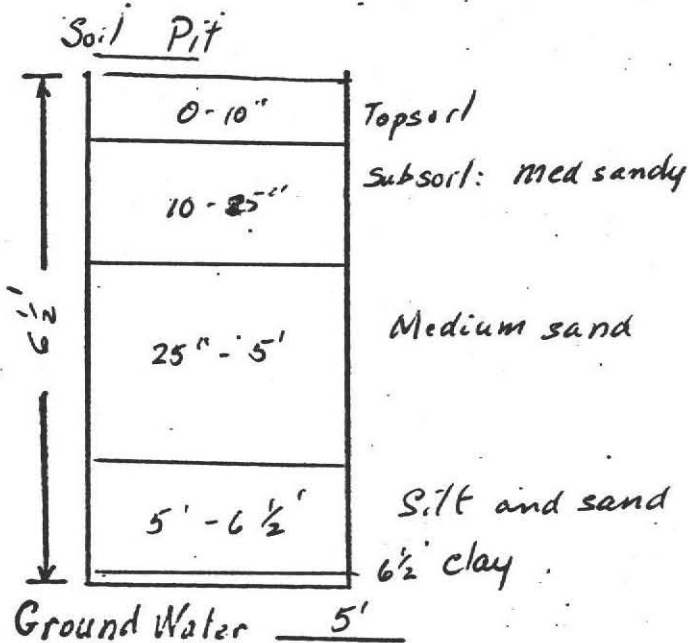 Soil Pit
0-10" Topsoil
Subsoil: Med sandy
10-25"
6½'
25"-5' Medium sand
5'-6½' Silt and sand
6½' clay.
Ground Water 5'